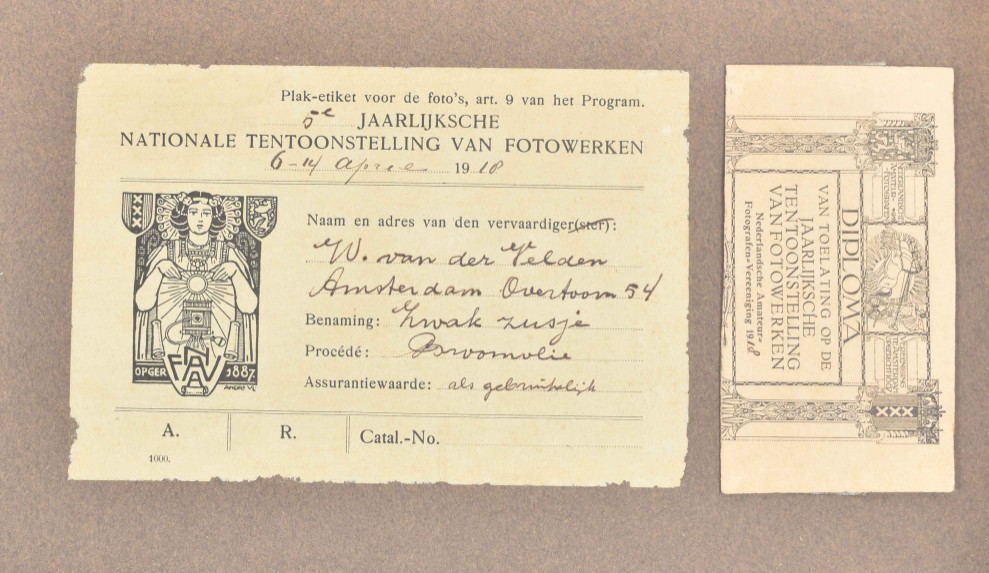 Plak-etiket voor de foto's, art. 9 van het Program.
5e JAARLIJKSCHE
NATIONALE TENTOONSTELLING VAN FOTOWERKEN
6-14 April 1918
Naam en adres van den vervaardiger(ster):
W. van der Velden
Amsterdam Overtoom 54
Benaming: Zwak zusje
Procédé: Broomolie
Assurantiewaarde: als gebruikelijk
XXX
OPGER 1887
A. R. Catal.-No.
1000.
DIPLOMA
VAN TOELATING OP DE
JAARLIJKSCHE
TENTOONSTELLING
VAN FOTOWERKEN
Nederlandsche Amateur-
Fotografen-Vereeniging 1918
XXX